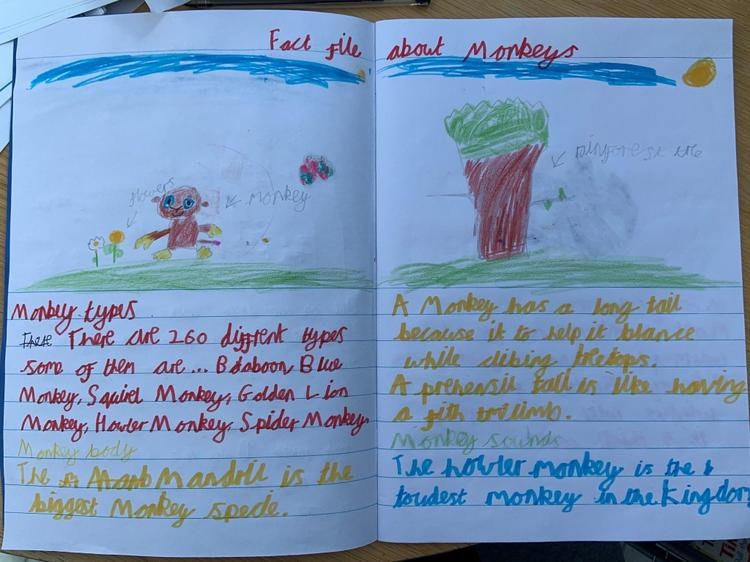 Fact file about Monkeys
flowers
monkey
rainforest tre
Monkey types
There There are 260 diffrent types
some of them are... Babaoon, Blue
Monkey, Squirel Monkey, Golden Lion
Monkey, Howler Monkey, Spider Monkey
Monkey body
The Mandrill is the
biggest Monkey specie.
A Monkey has a long tail
because it to help it blance
while cliking treetops.
A prehensil tail is like having
a fith limb.
Monkey sounds
The howler monkey is the
loudest monkey in the kingdom